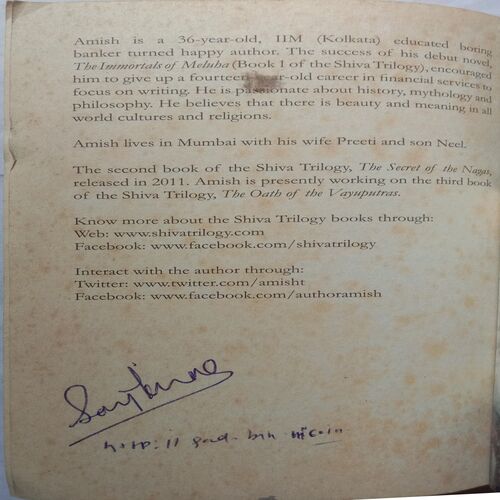 Amish is a 36-year-old, IIM (Kolkata) educated boring
banker turned happy author. The success of his debut novel,
The Immortals of Meluha (Book 1 of the Shiva Trilogy), encouraged
him to give up a fourteen-year-old career in financial services to
focus on writing. He is passionate about history, mythology and
philosophy. He believes that there is beauty and meaning in all
world cultures and religions.
Amish lives in Mumbai with his wife Preeti and son Neel.
The second book of the Shiva Trilogy, The Secret of the Nagas,
released in 2011. Amish is presently working on the third book
of the Shiva Trilogy, The Oath of the Vayuputras.
Know more about the Shiva Trilogy books through:
Web: www.shivatrilogy.com
Facebook: www.facebook.com/shivatrilogy
Interact with the author through:
Twitter: www.twitter.com/amisht
Facebook: www.facebook.com/authoramish